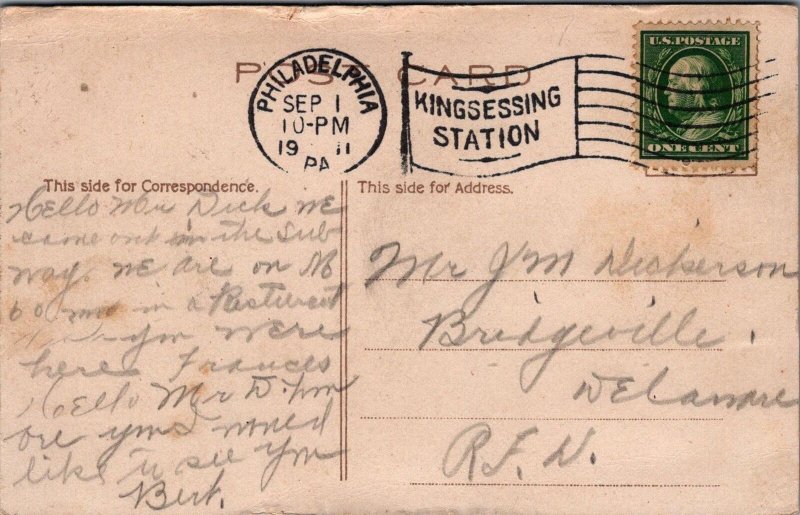 POST CARD
PHILADELPHIA
SEP 1
10-PM
19 11
PA
KINGSESSING
STATION
U.S. POSTAGE
ONE CENT
This side for Correspondence.
This side for Address.
Hello Mr Dick we
came out in the Sub
way. we are on
in a Resturent
you were
here Frances
Hello Mr D.
like to see you
Bert.
Mr J M Dickerson
Bridgeville.
Delaware
R.F.D.